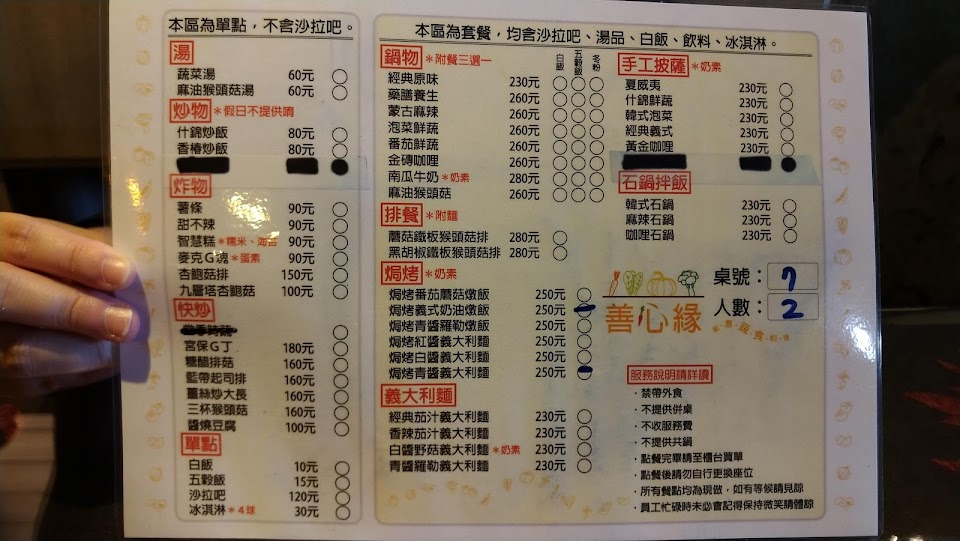 本區為單點，不含沙拉吧。
湯
蔬菜湯 60元
麻油猴頭菇湯 60元
炒物 *假日不提供唷
什錦炒飯 80元
香椿炒飯 80元
炸物
薯條 90元
甜不辣 90元
智慧糕*糯米、海苔 90元
麥克G塊*蛋素 90元
杏鮑菇排 150元
九層塔杏鮑菇 100元
快炒
宮保G丁 180元
糖醋排菇 160元
藍帶起司排 160元
薑絲炒大長 160元
三杯猴頭菇 160元
醬燒豆腐 100元
單點
白飯 10元
五穀飯 15元
沙拉吧 120元
冰淇淋*4球 30元
本區為套餐，均含沙拉吧、湯品、白飯、飲料、冰淇淋。
鍋物 *附餐三選一 白飯 五穀飯 冬粉
經典原味 230元
藥膳養生 260元
蒙古麻辣 260元
泡菜鮮蔬 260元
番茄鮮蔬 260元
金磚咖哩 260元
南瓜牛奶*奶素 280元
麻油猴頭菇 260元
排餐 *附麵
蘑菇鐵板猴頭菇排 280元
黑胡椒鐵板猴頭菇排 280元
焗烤 *奶素
焗烤番茄蘑菇燉飯 250元
焗烤義式奶油燉飯 250元
焗烤青醬羅勒燉飯 250元
焗烤紅醬義大利麵 250元
焗烤白醬義大利麵 250元
焗烤青醬義大利麵 250元
義大利麵
經典茄汁義大利麵 230元
香辣茄汁義大利麵 230元
白醬野菇義大利麵*奶素 230元
青醬羅勒義大利麵 230元
手工披薩 *奶素
夏威夷 230元
什錦鮮蔬 230元
韓式泡菜 230元
經典義式 230元
黃金咖哩 230元
石鍋拌飯
韓式石鍋 230元
麻辣石鍋 230元
咖哩石鍋 230元
善心緣
桌號：7
人數：2
服務說明請詳讀
·禁帶外食
·不提供併桌
·不收服務費
·不提供共鍋
·點餐完畢請至櫃台買單
·點餐後請勿自行更換座位
·所有餐點均為現做，如有等候請見諒
·員工忙碌時未必會記得保持微笑請體諒